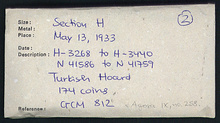 Size: Section H
Metal:
Place: May 13, 1933
Date:
Description: H-3268 to H-3440
N 41586 to N 41759
Turkish Hoard
174 coins.
GCM 812
Reference: = Agora IX, no. 208.
②